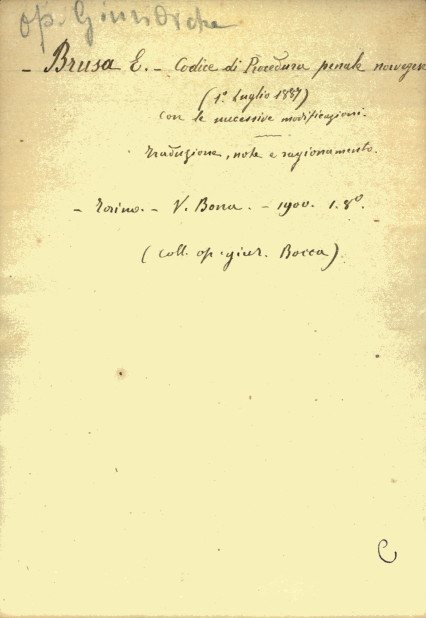 op. Giuridiche
- Brusa E. - Codice di Procedura penale norvegese
(1º Luglio 1887)
con le successive modificazioni.
traduzione, note e ragionamento.
- Torino. - V. Bona. - 1900. 1. 8º.
(Coll. op. giur. Bocca)
C